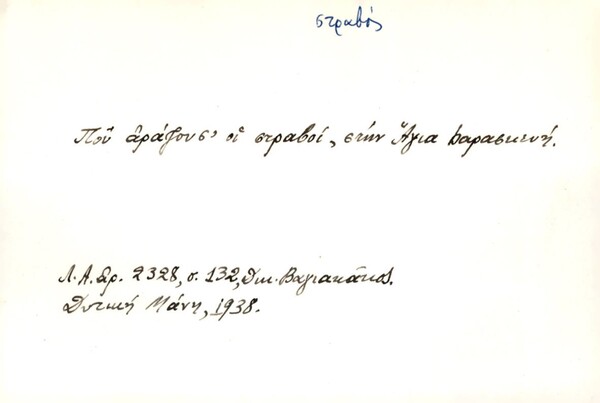 στραβός
Ποῦ ἀράζουσ' οἱ στραβοί, στὴν Ἅγια Παρασκευή.
Λ.Α. ἀρ. 2328, σ. 132, Δικ. Βαγιακάκος.
Δυτική Μάνη, 1938.